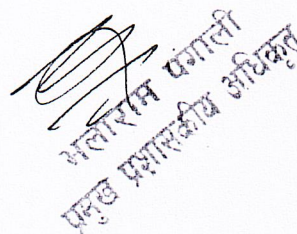 भलाराम बगाली
प्रमुख प्रशासकीय अधिकृत